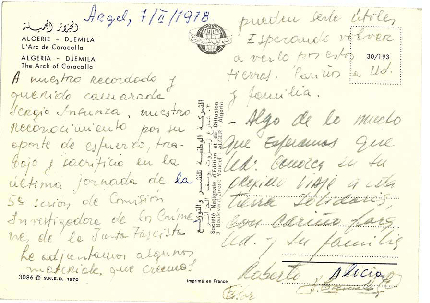 Argel, 7/II/1978
الجزائر - جميلة
ALGERIE - DJEMILA
L'Arc de Caracalla
ALGERIA - DJEMILA
The Arch of Caracalla
A nuestro recordado y
querido camarada
Sergio Insunza, nuestro
reconocimiento por su
aporte de esfuerzo, tra-
bajo y sacrificio en la
última jornada de la
5ª sesión de Comisión
Investigadora de los Críme-
nes de la Junta Fascista
Le adjuntamos algunos
materiales que creemos
3086 © S.N.E.D. 1970
Imprimé en France
30/193
pueden serle útiles,
Esperando volver
a verlo por estas
tierras. Cariños a Ud.
y familia.
- Algo de lo mucho
que esperamos que
Ud. conozca en su
viaje a esta
tierra solidaria
con cariño para
Ud. y su familia
Roberto Alicia